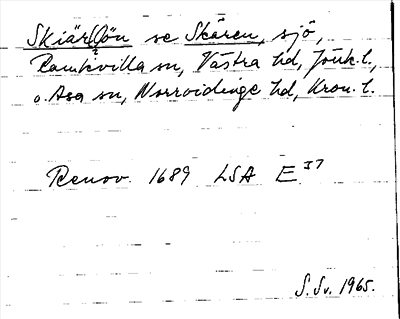 Skiärsiön se Skären, sjö,
Ramkvilla sn, Västra hd, Jönk. l.,
o. Asa sn, Norrvidinge hd, Kron. l.
Renov. 1689 LSA E 37
S. Sv. 1965.